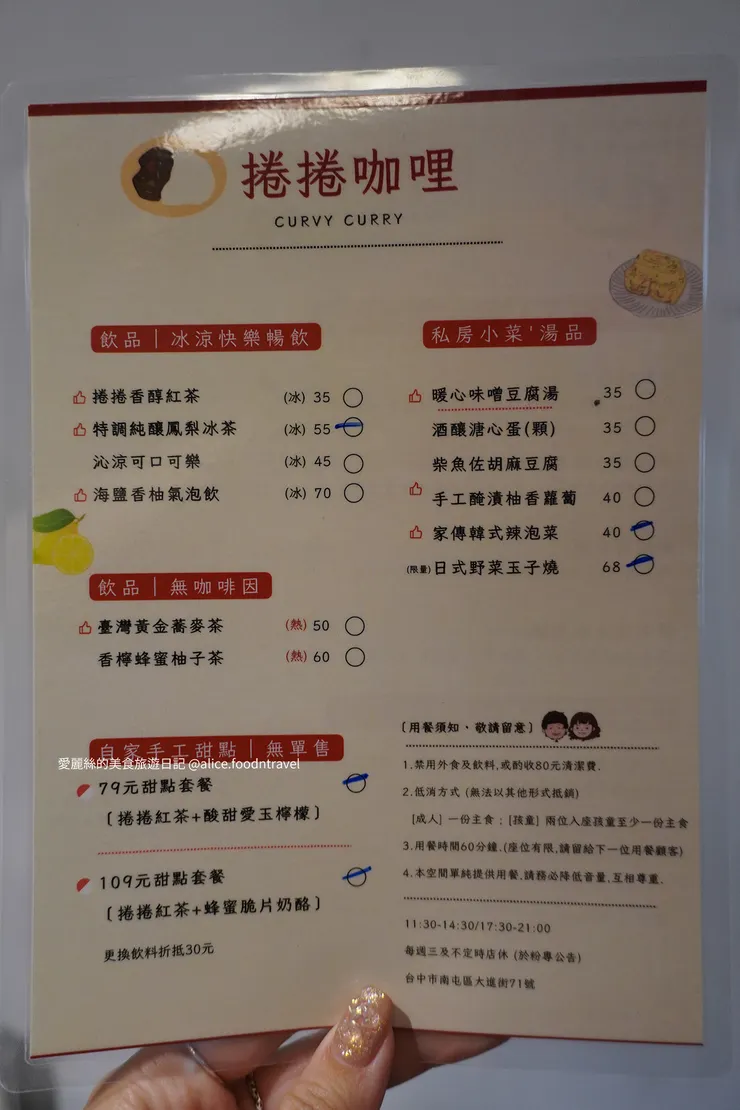 捲捲咖哩
CURVY CURRY
飲品｜冰涼快樂暢飲
捲捲香醇紅茶 (冰) 35
特調純釀鳳梨冰茶 (冰) 55
沁涼可口可樂 (冰) 45
海鹽香柚氣泡飲 (冰) 70
飲品｜無咖啡因
臺灣黃金蕎麥茶 (熱) 50
香檸蜂蜜柚子茶 (熱) 60
自家手工甜點｜無單售
愛麗絲的美食旅遊日記 @alice.foodntravel
79元甜點套餐
〔捲捲紅茶+酸甜愛玉檸檬〕
109元甜點套餐
〔捲捲紅茶+蜂蜜脆片奶酪〕
更換飲料折抵30元
私房小菜'湯品
暖心味噌豆腐湯 35
酒釀溏心蛋(顆) 35
柴魚佐胡麻豆腐 35
手工醃漬柚香蘿蔔 40
家傳韓式辣泡菜 40
(限量)日式野菜玉子燒 68
〔用餐須知、敬請留意〕
1.禁用外食及飲料,或酌收80元清潔費.
2.低消方式 (無法以其他形式抵銷)
[成人] 一份主食 ; [孩童] 兩位入座孩童至少一份主食
3.用餐時間60分鐘.(座位有限,請留給下一位用餐顧客)
4.本空間單純提供用餐,請務必降低音量,互相尊重.
11:30-14:30/17:30-21:00
每週三及不定時店休 (於粉專公告)
台中市南屯區大進街71號